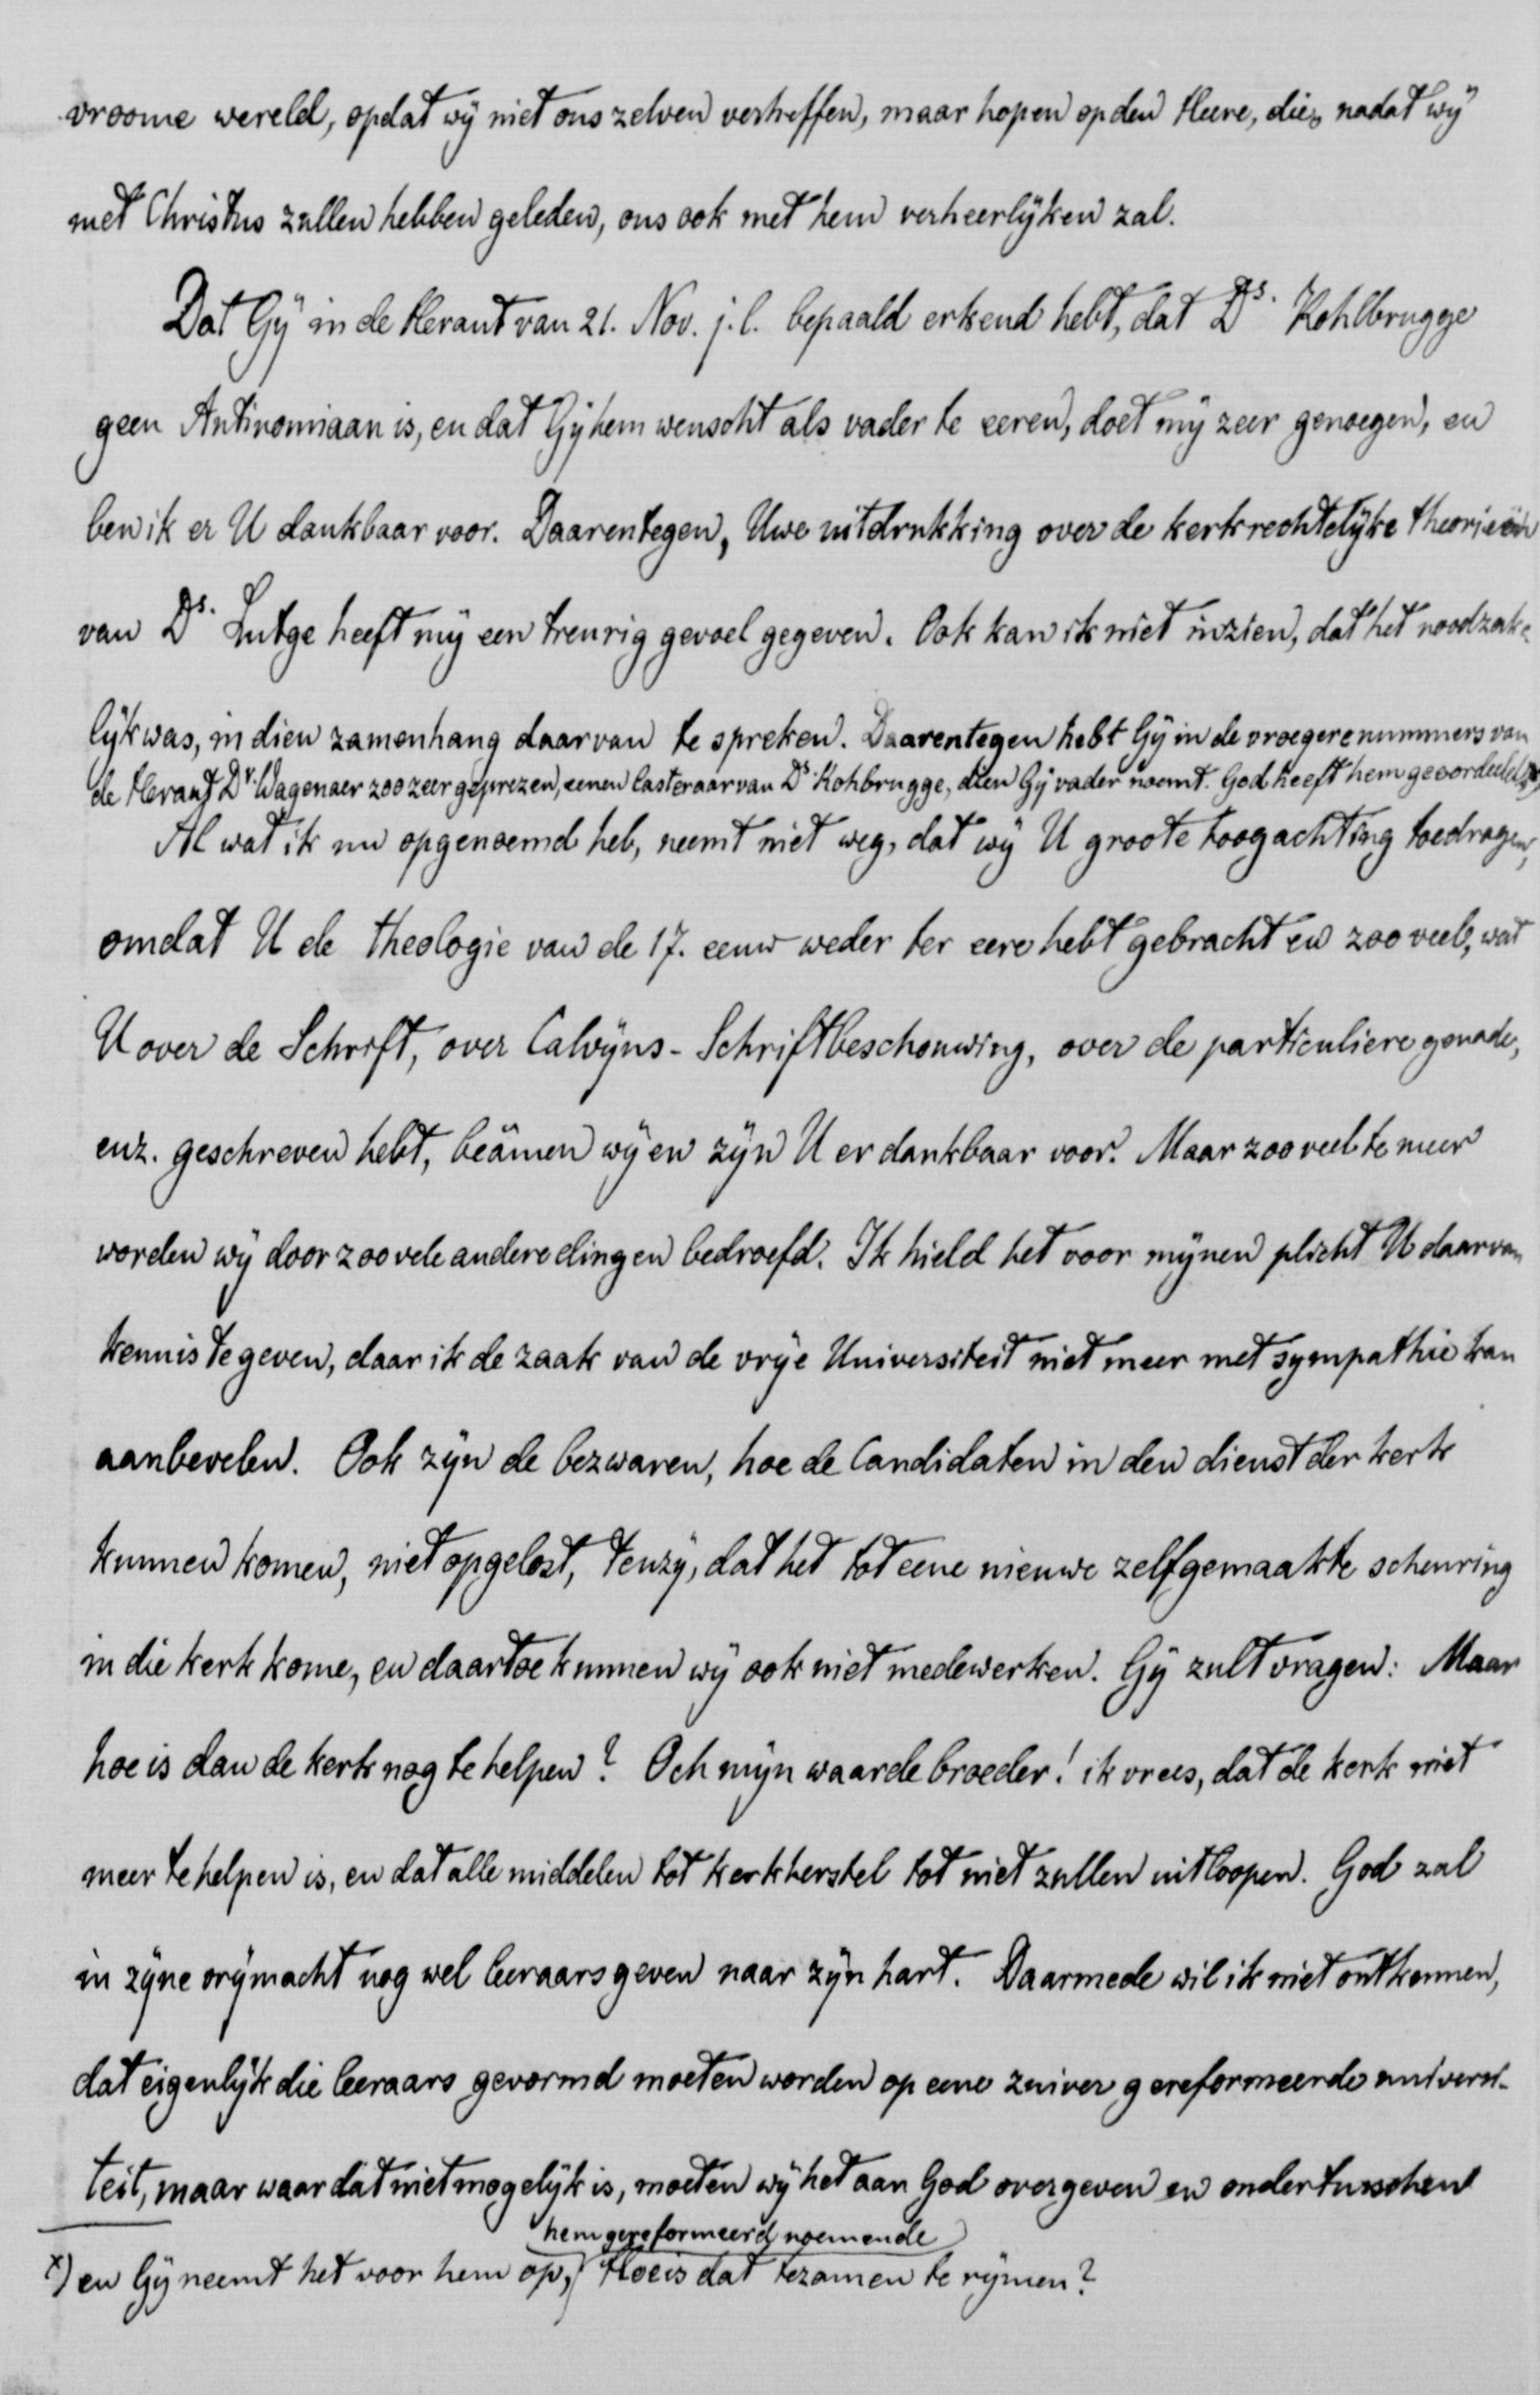 vroome wereld, opdat wij niet ons zelven verheffen, maar hopen op den Heere, die, nadat wij
met Christus zullen hebben geleden, ons ook met hem verheerlijken zal.
Dat Gij in de Heraut van 21. Nov. j.l. bepaald erkend hebt, dat Ds. Kohlbrugge
geen Antinomiaan is, en dat Gij hem wenscht als vader te eeren, doet mij zeer genoegen, en
ben ik er U dankbaar voor. Daarentegen, Uwe uitdrukking over de kerkrechtelijke theorieën
van Ds. Lutge heeft mij een treurig gevoel gegeven. Ook kan ik niet inzien, dat het noodzake-
lijk was, in dien zamenhang daarvan te spreken. Daarentegen hebt Gij in de vroegere nummers van
de Heraut Dr. Wagenaer zoo zeer geprezen, eenen lasteraar van Ds. Kohbrugge, dien Gij vader noemt. God heeft hem geoordeeld x)
Al wat ik nu opgenoemd heb, neemt niet weg, dat wij U groote hoogachting toedragen,
omdat U de theologie van de 17. eeuw weder ter eere hebt gebracht en zoo veel, wat
U over de Schrift, over Calvijns-Schriftbeschouwing, over de particuliere genade,
enz. geschreven hebt, beämen wij en zijn U er dankbaar voor. Maar zoo veel te meer
worden wij door zoo vele andere dingen bedroefd. Ik hield het voor mijnen plicht U daarvan
kennis te geven, daar ik de zaak van de vrije Universiteit niet meer met sympathie kan
aanbevelen. Ook zijn de bezwaren, hoe de Candidaten in den dienst der kerk
kunnen komen, niet opgelost, tenzij, dat het tot eene nieuwe zelfgemaakte scheuring
in die kerk kome, en daartoe kunnen wij ook niet medewerken. Gij zult vragen: Maar
hoe is dan de kerk nog te helpen? Och mijn waarde broeder! ik vrees, dat de kerk niet
meer te helpen is, en dat alle middelen tot kerkherstel tot niet zullen uitloopen. God zal
in zijne vrijmacht nog wel leeraars geven naar zijn hart. Daarmede wil ik niet ontkennen,
dat eigenlijk die leeraars gevormd moeten worden op eene zuiver gereformeerde universi-
teit, maar waar dat niet mogelijk is, moeten wij het aan God overgeven en ondertusschen
hem gereformeerd noemende
x) en Gij neemt het voor hem op, Hoe is dat tezamen te rijmen?